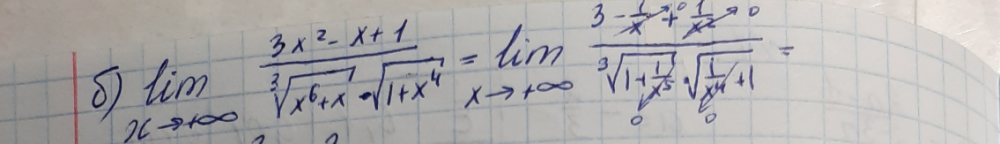 б) lim x→+∞ (3x² - x + 1) / (∛(x⁶+x) · √(1+x⁴)) = lim x→+∞ (3 - 1/x + 1/x²) / (∛(1 + 1/x⁵) · √(1/x⁴ + 1)) =